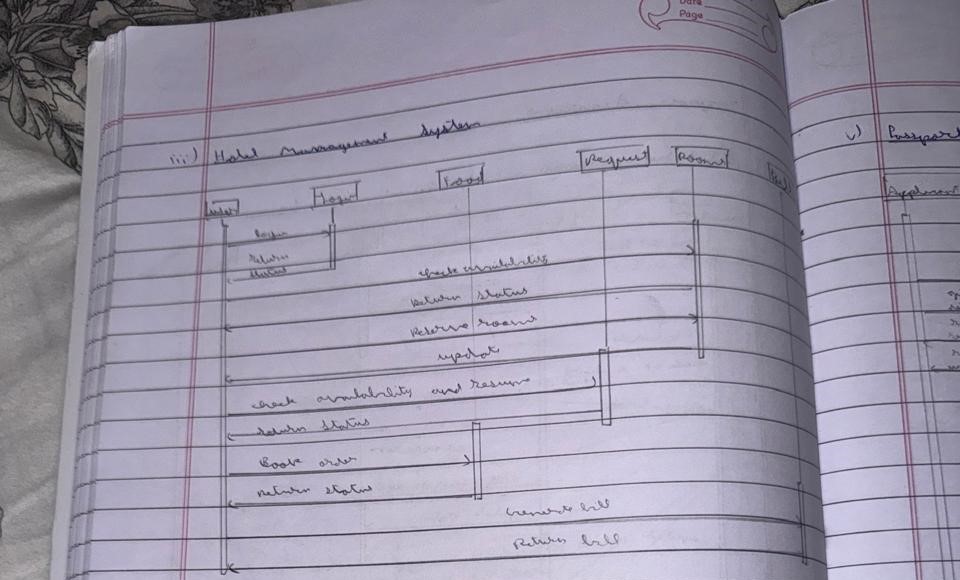 Date
Page
iii) Hotel Management System
v) Passport
User Login Food Request Rooms Bill
Applicant
login
return
status
check availability
Return status
Reserve rooms
update
check availability and resume
return status
Book order
Return status
Generate bill
Return bill